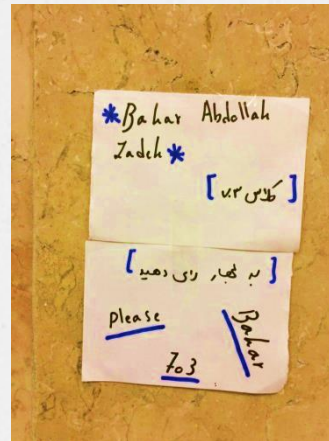 *Bahar Abdollah
Zadeh*
[کلاس ۷.۳]
[به بهار رای دهید]
please Bahar
703